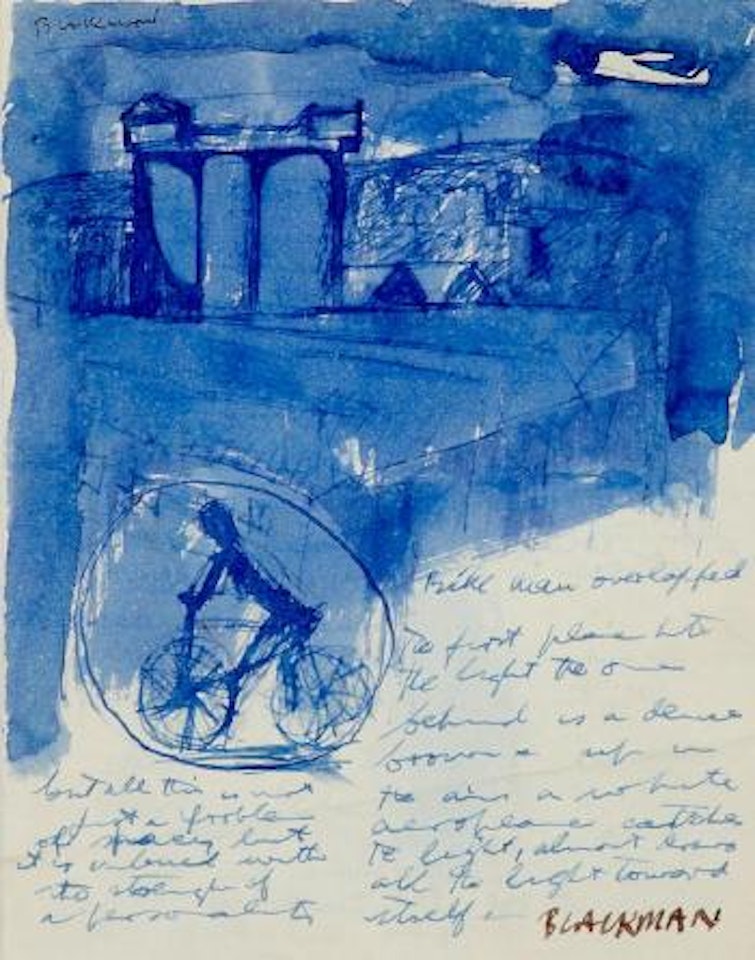 Blackman
Bike man overlapped
The first plane into
the light the one
behind is a dense
brown & up in
the air a white
aeroplane catches
the light, almost
all the light toward
itself.
but all this is not
just a problem
of but
it is with
the strength of
a personality
BLACKMAN